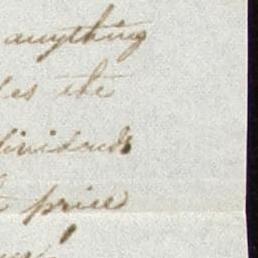 anything
les the
dividends
price